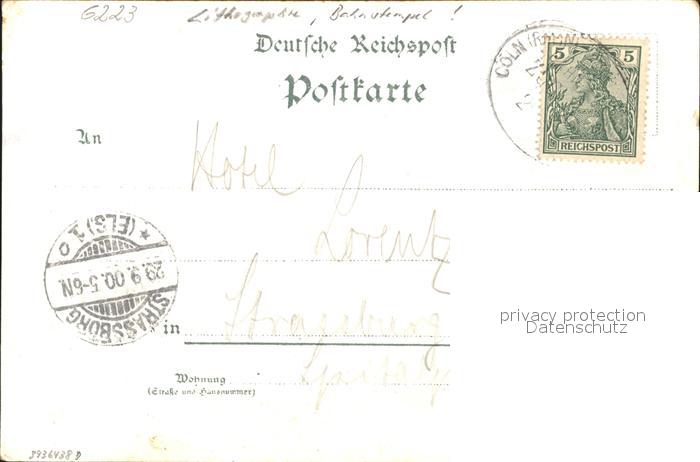 G223 Lithographie, Bahnstempel !
Deutsche Reichspost
Postkarte
CÖLN
5 5
REICHSPOST
An
Hotel
Lorentz
* (ELS.) 1 o
29.9.00.5-6N.
STRASSBURG
in Strassburg
privacy protection
Datenschutz
Wohnung
(Straße und Hausnummer)
3936438 D